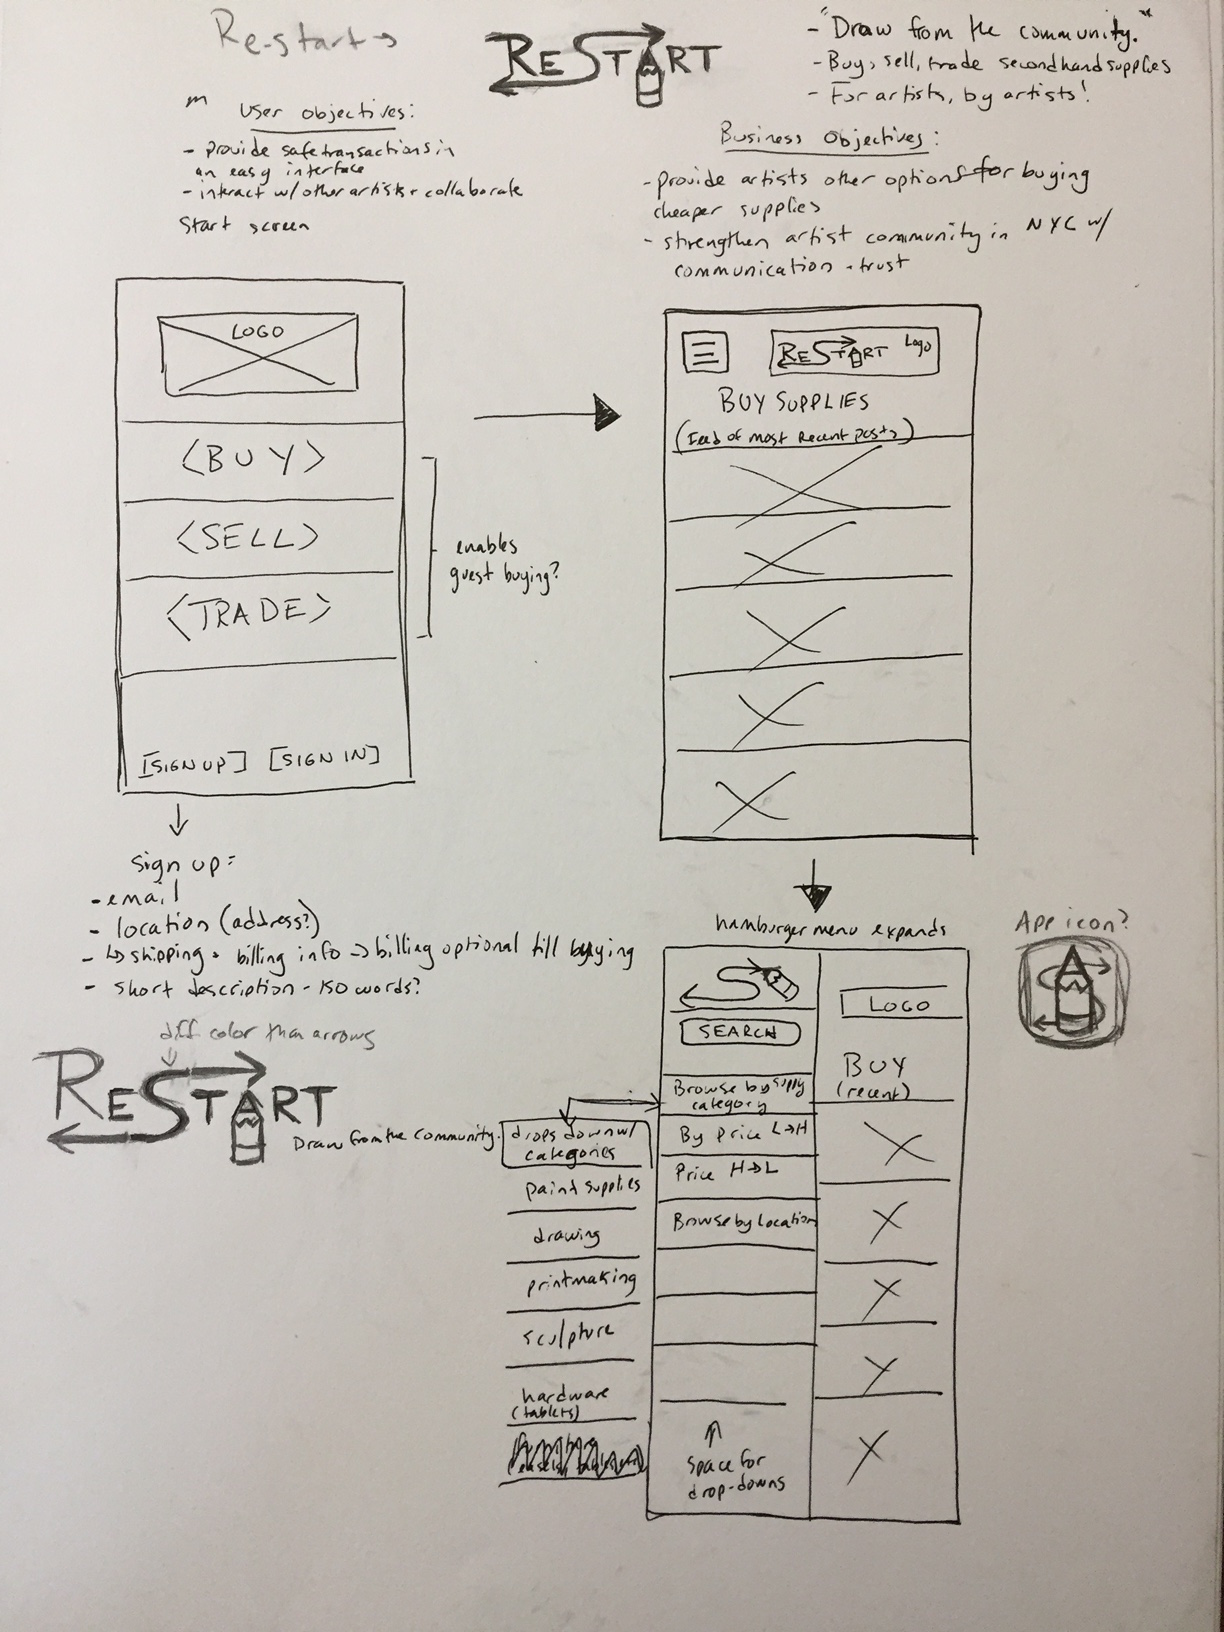 Re-start →
RESTART
- "Draw from the community."
- Buy, sell, trade secondhand supplies
- For artists, by artists!
User objectives:
- provide safe transactions in
an easy interface
- interact w/ other artists + collaborate
Start screen
Business Objectives:
- provide artists other options for buying
cheaper supplies
- strengthen artist community in NYC w/
communication + trust
LOGO
<BUY>
<SELL>
<TRADE>
enables
guest buying?
[SIGN UP] [SIGN IN]
RESTART Logo
BUY SUPPLIES
(Feed of most recent posts)
sign up:
- email
- location (address?)
- ↳ shipping + billing info → billing optional till buying
- short description - 150 words?
diff color than arrows
RESTART
Draw from the community.
hamburger menu expands
App icon?
SEARCH
LOGO
BUY
(recent)
Browse by supply
category
By Price L→H
Price H→L
Browse by Location
drops down w/
categories
paint supplies
drawing
printmaking
sculpture
hardware
(tablets)
↑
space for
drop-downs